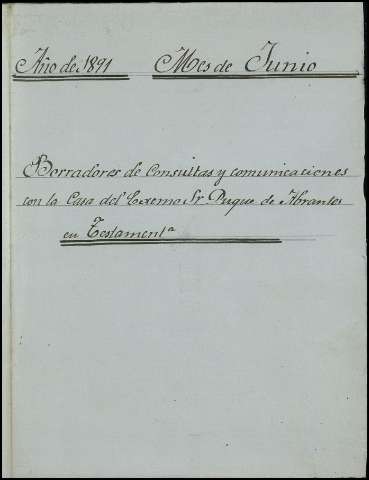 Año de 1891 Mes de Junio
Borradores de Consultas y comunicaciones
con la Casa del Excmo Sr. Duque de Abrantes
en Testamentª